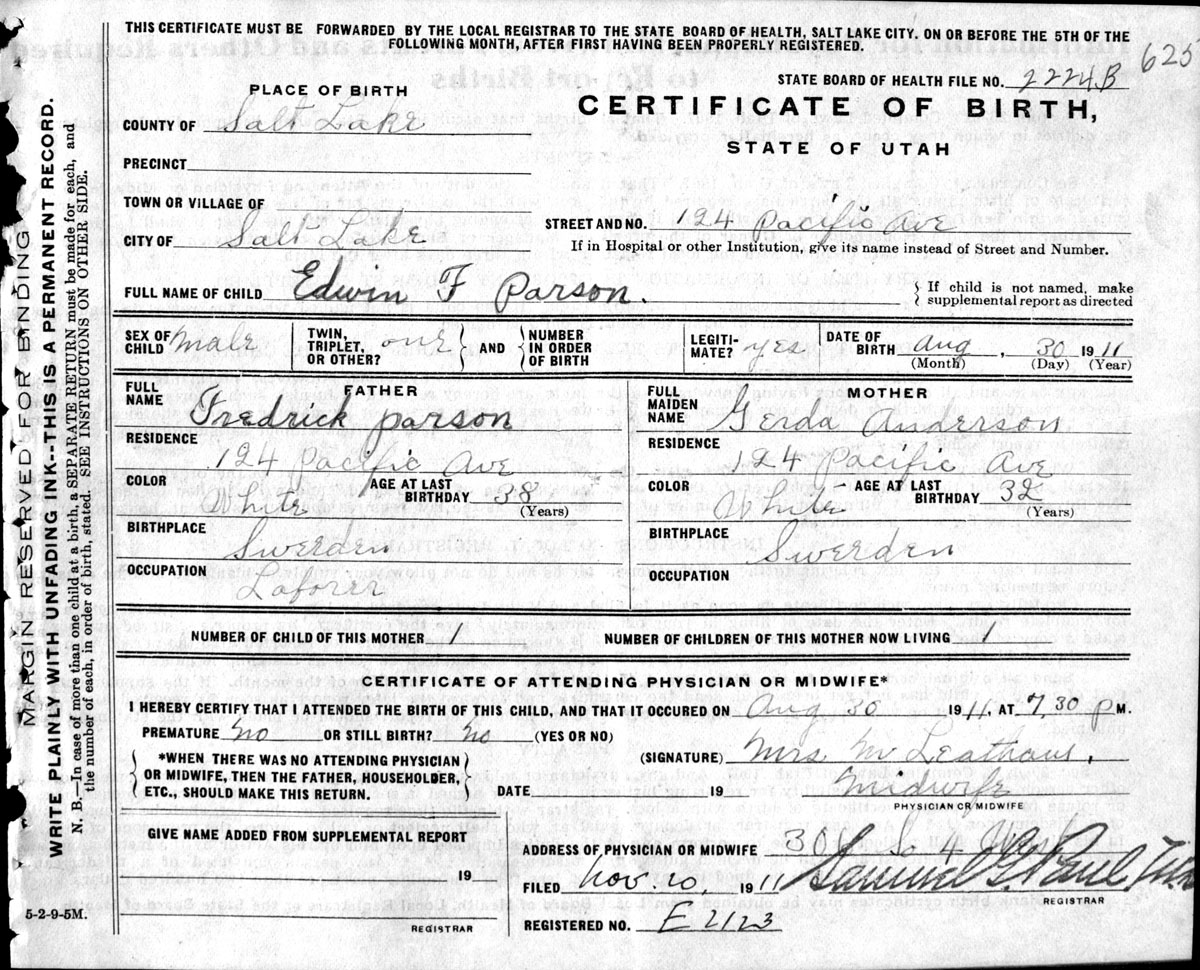 THIS CERTIFICATE MUST BE FORWARDED BY THE LOCAL REGISTRAR TO THE STATE BOARD OF HEALTH, SALT LAKE CITY. ON OR BEFORE THE 5TH OF THE
FOLLOWING MONTH, AFTER FIRST HAVING BEEN PROPERLY REGISTERED.
625
STATE BOARD OF HEALTH FILE NO. 2224B
PLACE OF BIRTH
CERTIFICATE OF BIRTH,
STATE OF UTAH
COUNTY OF Salt Lake
PRECINCT
TOWN OR VILLAGE OF
STREET AND NO. 124 Pacific Ave
CITY OF Salt Lake
If in Hospital or other Institution, give its name instead of Street and Number.
FULL NAME OF CHILD Edwin F Parson.
If child is not named, make
supplemental report as directed
SEX OF CHILD male
TWIN, TRIPLET, OR OTHER? one
AND
NUMBER IN ORDER OF BIRTH
LEGITI-MATE? yes
DATE OF BIRTH Aug, 30 1911
(Month) (Day) (Year)
FATHER
FULL NAME Fredrick parson
RESIDENCE
124 Pacific Ave
COLOR White
AGE AT LAST BIRTHDAY 38
(Years)
BIRTHPLACE
Swerden
OCCUPATION
Laforer
MOTHER
FULL MAIDEN NAME Gerda Anderson
RESIDENCE
124 Pacific Ave
COLOR White
AGE AT LAST BIRTHDAY 32
(Years)
BIRTHPLACE
Swerden
OCCUPATION
NUMBER OF CHILD OF THIS MOTHER 1
NUMBER OF CHILDREN OF THIS MOTHER NOW LIVING
CERTIFICATE OF ATTENDING PHYSICIAN OR MIDWIFE*
I HEREBY CERTIFY THAT I ATTENDED THE BIRTH OF THIS CHILD, AND THAT IT OCCURED ON Aug 30 1911, AT 7,30 P M.
PREMATURE No OR STILL BIRTH? No (YES OR NO)
*WHEN THERE WAS NO ATTENDING PHYSICIAN
OR MIDWIFE, THEN THE FATHER, HOUSEHOLDER,
ETC., SHOULD MAKE THIS RETURN.
(SIGNATURE) Mrs M
DATE 19
Midwife
PHYSICIAN OR MIDWIFE
GIVE NAME ADDED FROM SUPPLEMENTAL REPORT
19
REGISTRAR
ADDRESS OF PHYSICIAN OR MIDWIFE So 4 West
FILED Nov. 20, 1911 Samuel G. Paul
REGISTRAR
REGISTERED NO. E 2123
5-2-9-5M.
MARGIN RESERVED FOR BINDING
WRITE PLAINLY WITH UNFADING INK--THIS IS A PERMANENT RECORD.
N. B.—In case of more than one child at a birth, a SEPARATE RETURN must be made for each, and
the number of each, in order of birth, stated. SEE INSTRUCTIONS ON OTHER SIDE.